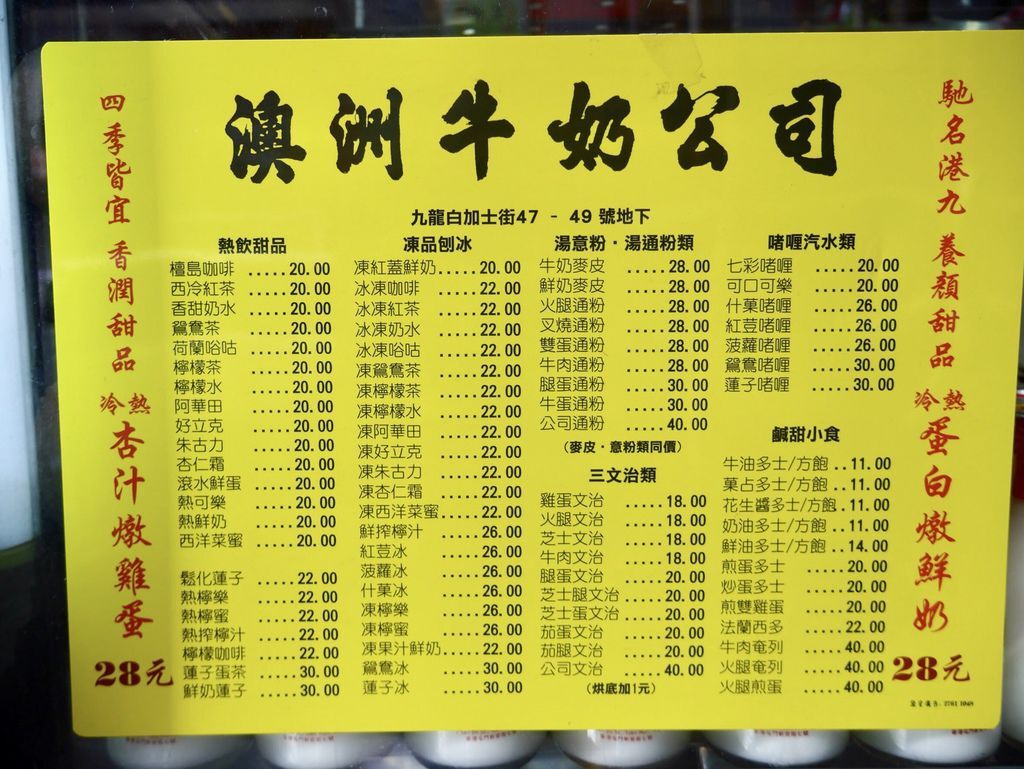 澳洲牛奶公司
九龍白加士街47 - 49 號地下
四季皆宜 香潤甜品
冷熱
杏汁燉雞蛋
28元
熱飲甜品
檀島咖啡 .....20.00
西冷紅茶 .....20.00
香甜奶水 .....20.00
鴛鴦茶 .....20.00
荷蘭哈咕 .....20.00
檸檬茶 .....20.00
檸檬水 .....20.00
阿華田 .....20.00
好立克 .....20.00
朱古力 .....20.00
杏仁霜 .....20.00
滾水鮮蛋 .....20.00
熱可樂 .....20.00
熱鮮奶 .....20.00
西洋菜蜜 .....20.00
鬆化蓮子 .....22.00
熱檸樂 .....22.00
熱檸蜜 .....22.00
熱搾檸汁 .....22.00
檸檬咖啡 .....22.00
蓮子蛋茶 .....30.00
鮮奶蓮子 .....30.00
凍品刨冰
凍紅蓋鮮奶.....20.00
冰凍咖啡 .....22.00
冰凍紅茶 .....22.00
冰凍奶水 .....22.00
冰凍哈咕 .....22.00
凍鴛鴦茶 .....22.00
凍檸檬茶 .....22.00
凍檸檬水 .....22.00
凍阿華田 .....22.00
凍好立克 .....22.00
凍朱古力 .....22.00
凍杏仁霜 .....22.00
凍西洋菜蜜.....22.00
鮮搾檸汁 .....26.00
紅荳冰 .....26.00
菠蘿冰 .....26.00
什菓冰 .....26.00
凍檸樂 .....26.00
凍檸蜜 .....26.00
凍果汁鮮奶.....22.00
鴛鴦冰 .....30.00
蓮子冰 .....30.00
湯意粉・湯通粉類
牛奶麥皮 .....28.00
鮮奶麥皮 .....28.00
火腿通粉 .....28.00
叉燒通粉 .....28.00
雙蛋通粉 .....28.00
牛肉通粉 .....28.00
腿蛋通粉 .....30.00
牛蛋通粉 .....30.00
公司通粉 .....40.00
(麥皮・意粉類同價)
三文治類
雞蛋文治 .....18.00
火腿文治 .....18.00
芝士文治 .....18.00
牛肉文治 .....18.00
腿蛋文治 .....20.00
芝士腿文治.....20.00
芝士蛋文治.....20.00
茄蛋文治 .....20.00
茄腿文治 .....20.00
公司文治 .....40.00
(烘底加1元)
啫喱汽水類
七彩啫喱 .....20.00
可口可樂 .....20.00
什菓啫喱 .....26.00
紅荳啫喱 .....26.00
菠蘿啫喱 .....26.00
鴛鴦啫喱 .....30.00
蓮子啫喱 .....30.00
鹹甜小食
牛油多士/方飽 ..11.00
菓占多士/方飽 ..11.00
花生醬多士/方飽 .11.00
奶油多士/方飽 ..11.00
鮮油多士/方飽 ..14.00
煎蛋多士 .....20.00
炒蛋多士 .....20.00
煎雙雞蛋 .....20.00
法蘭西多 .....22.00
牛肉奄列 .....40.00
火腿奄列 .....40.00
火腿煎蛋 .....40.00
馳名港九 養顏甜品
冷熱
蛋白燉鮮奶
28元